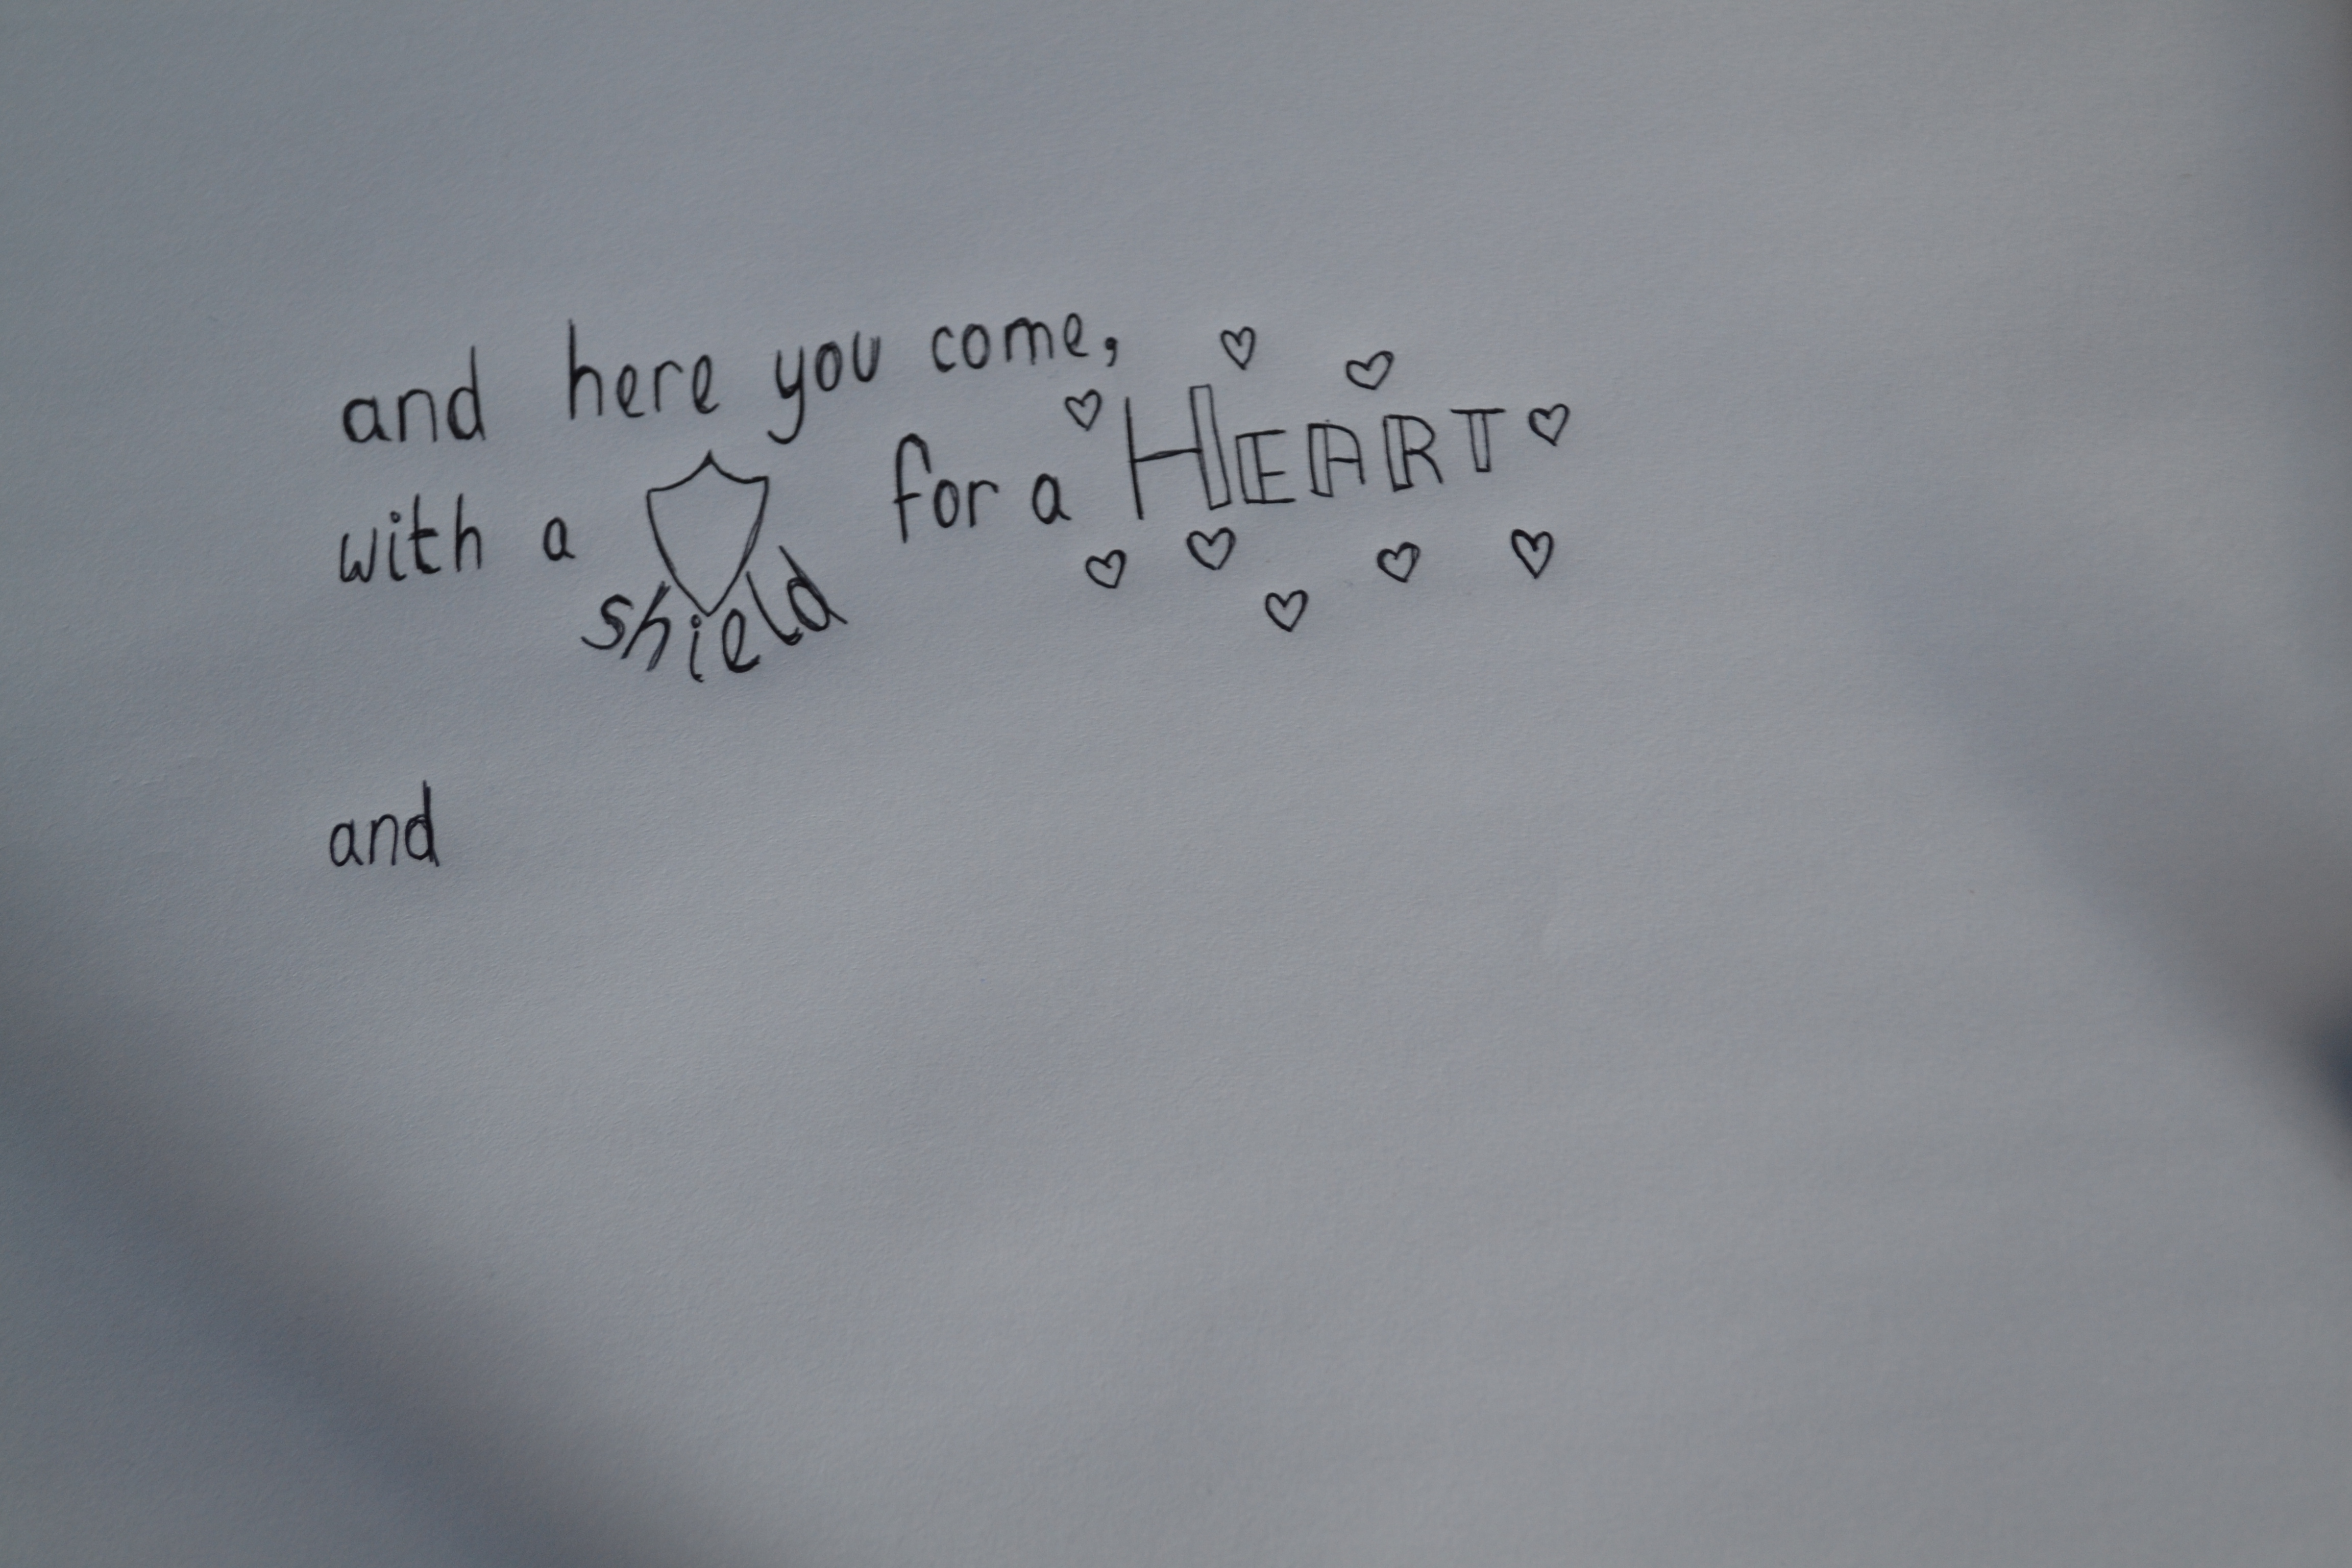 and here you come,
with a shield for a HEART
and